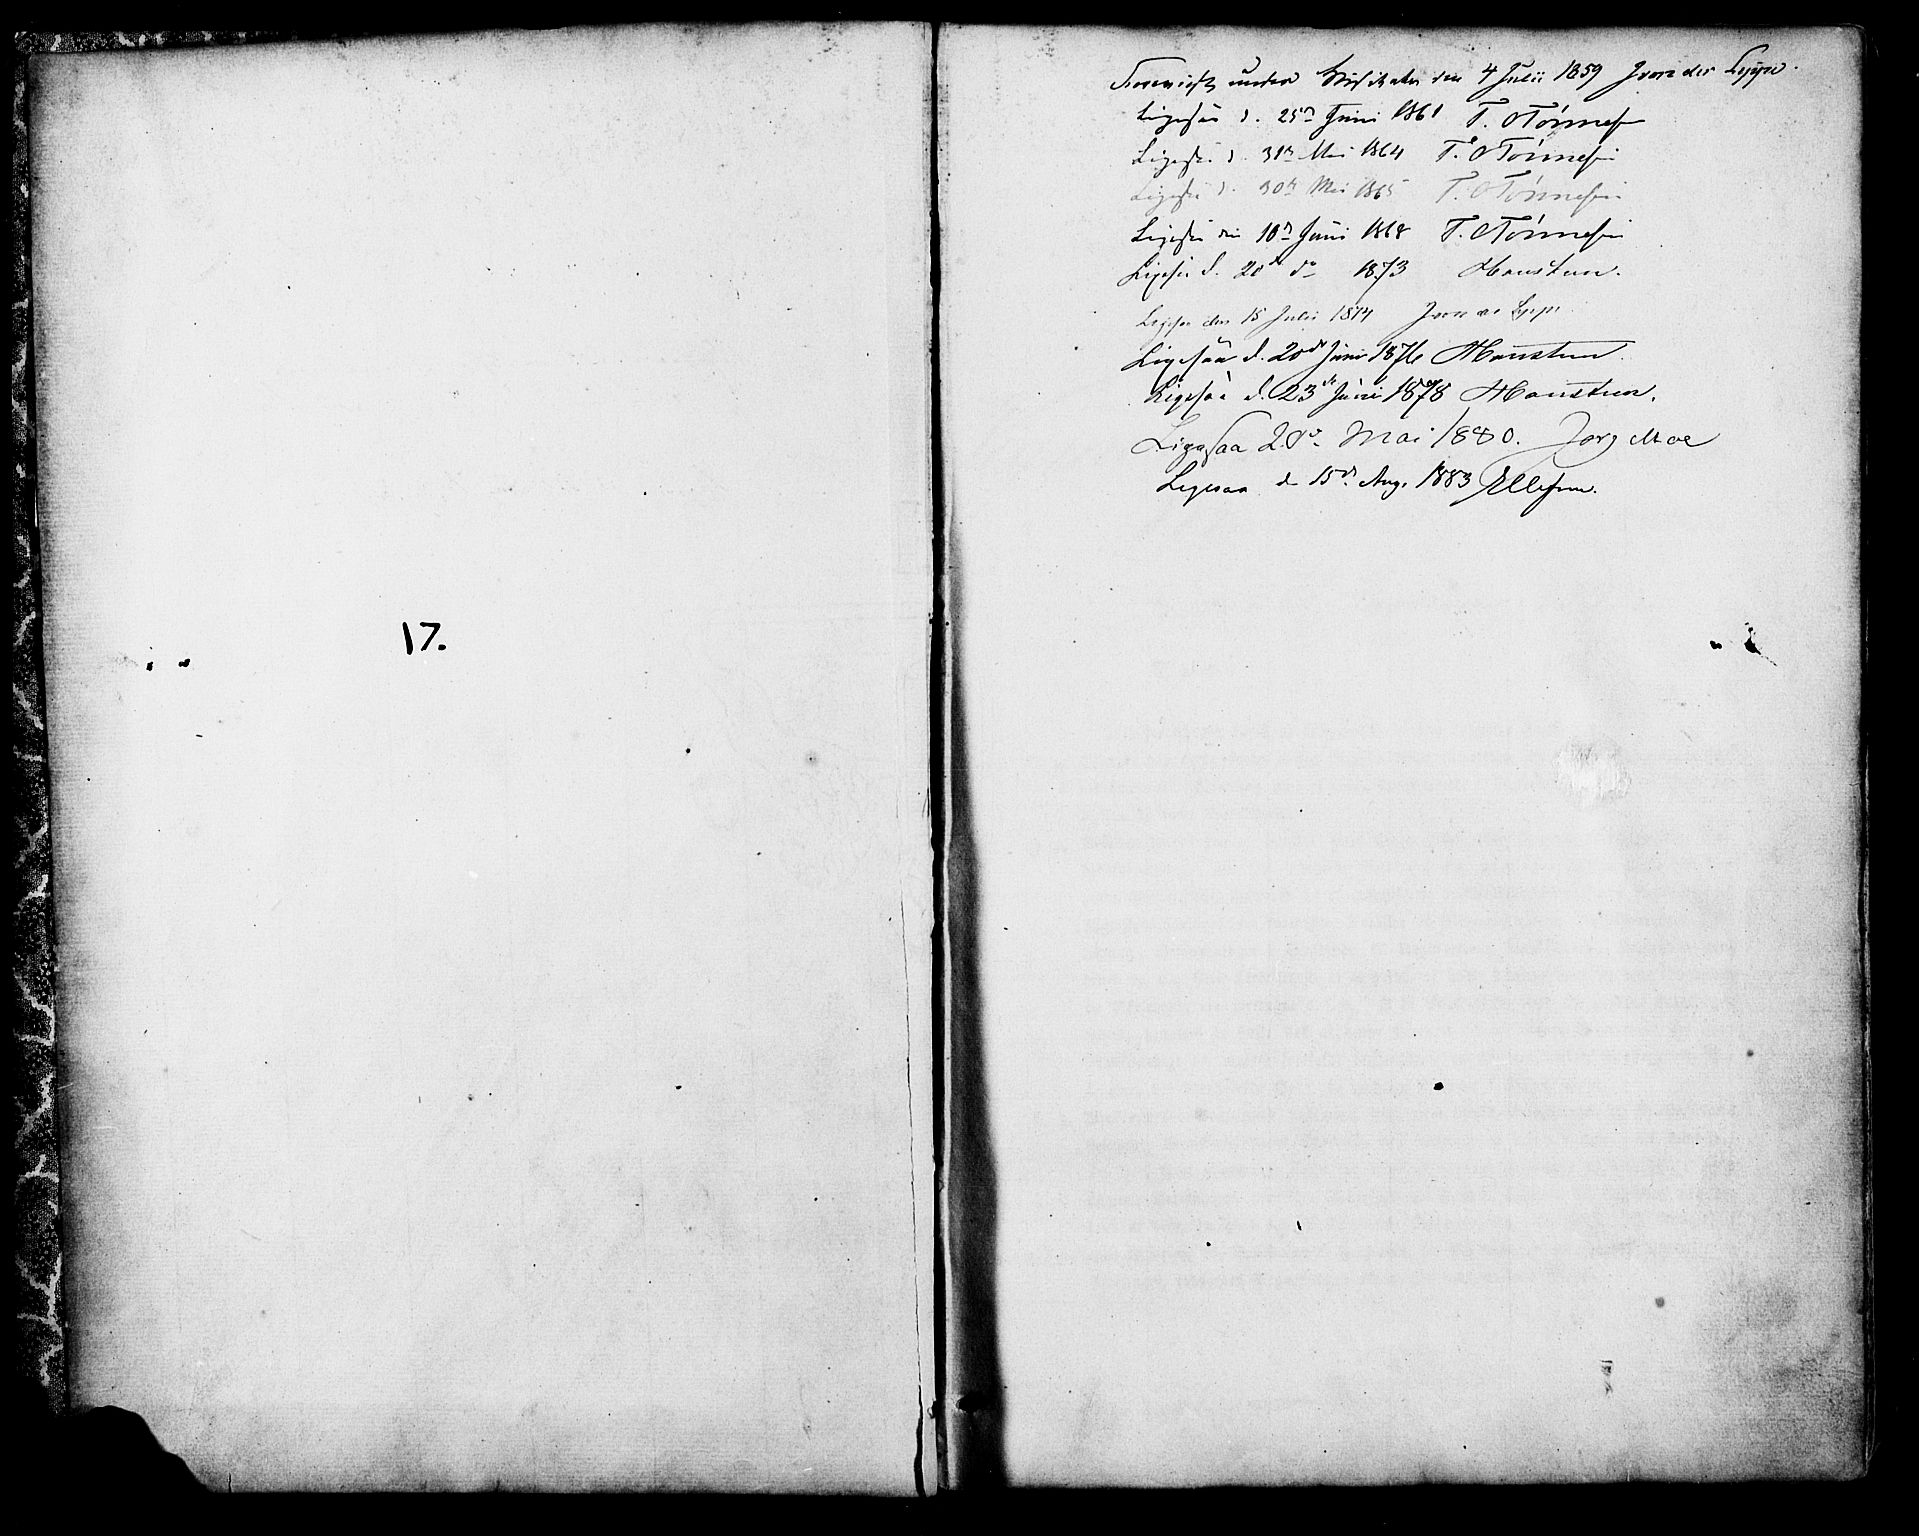 17.
Foreviist under Visitatsen den 4 Julii 1859 J von der Lippe.
Ligesaa d. 25de Juni 1861 T. O Tönnesen
Ligesaa d. 31te Mai 1864 T. O Tönnesen
Ligesaa d. 30te Mai 1865 T. O Tönnesen
Ligesaa den 10de Juni 1868 T. O Tönnesen
Ligesaa d. 20de do 1873 Monstun.
Ligesaa den 15 Julii 1874 J von der Lippe
Ligesaa d. 20de Juni 1876 Monstun.
Ligesaa d. 23de Juni 1878 Monstun.
Ligesaa 28de Mai 1880. Jørg Moe
Ligesaa d 15de Aug. 1883 Ellefsen.